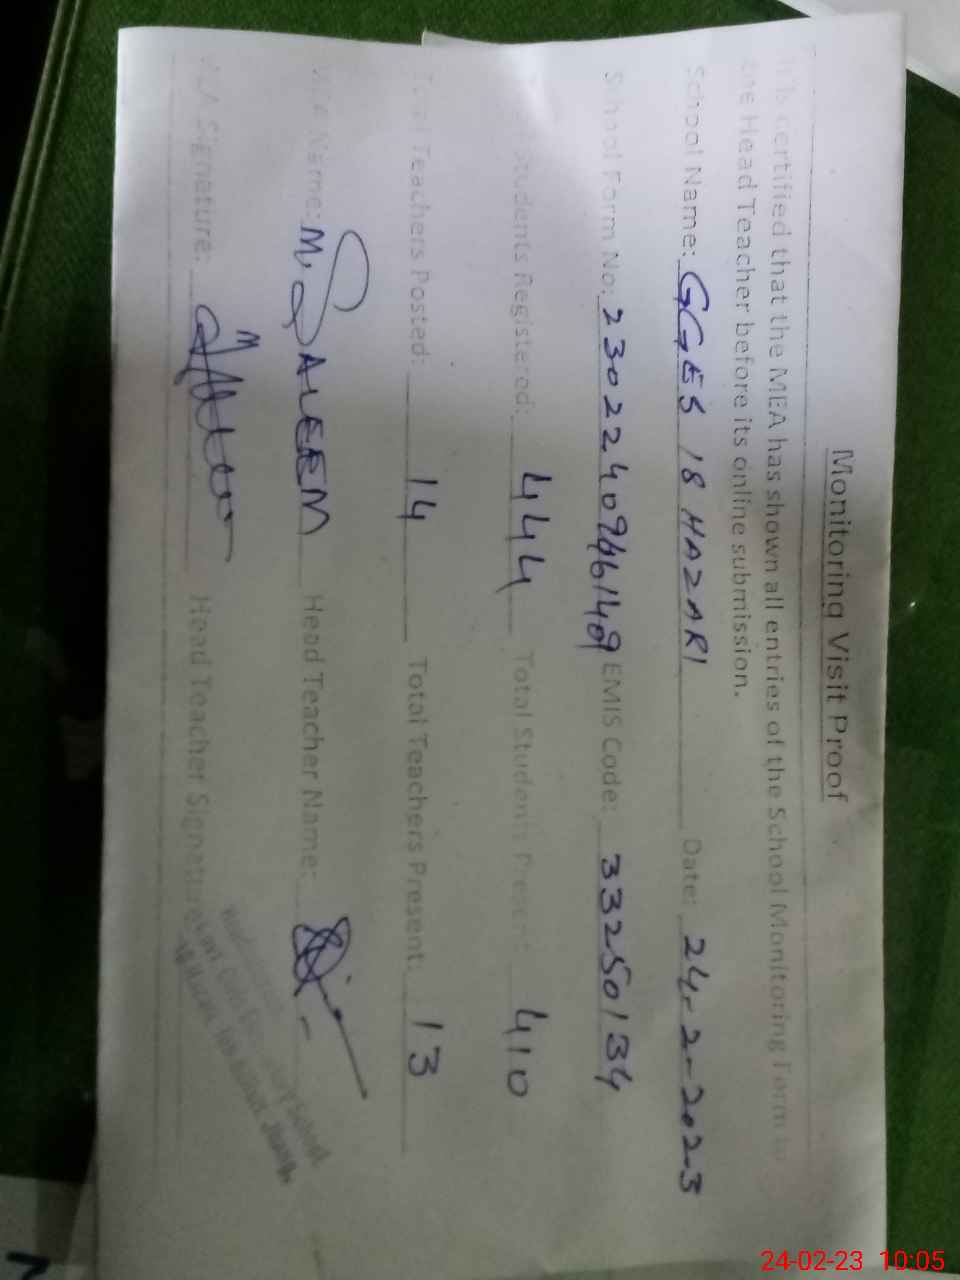 Monitoring Visit Proof
It is certified that the MEA has shown all entries of the School Monitoring Form to
the Head Teacher before its online submission.
School Name: GGES 18 HAZARI Date: 24-2-2023
School Form No: EMIS Code: 33250134
Students Registered: 444 Total Students Present 410
Total Teachers Posted: 14 Total Teachers Present: 13
MEA Name: M. SALEEM Head Teacher Name:
MEA Signature: Head Teacher Signature
24-02-23 10:05